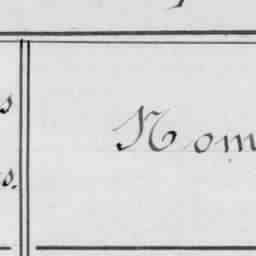 s
Nom
s.